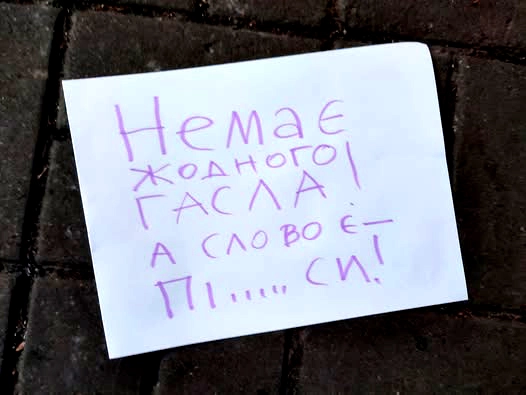 Немає
жодного
гасла!
а слово є—
Пі.....си!